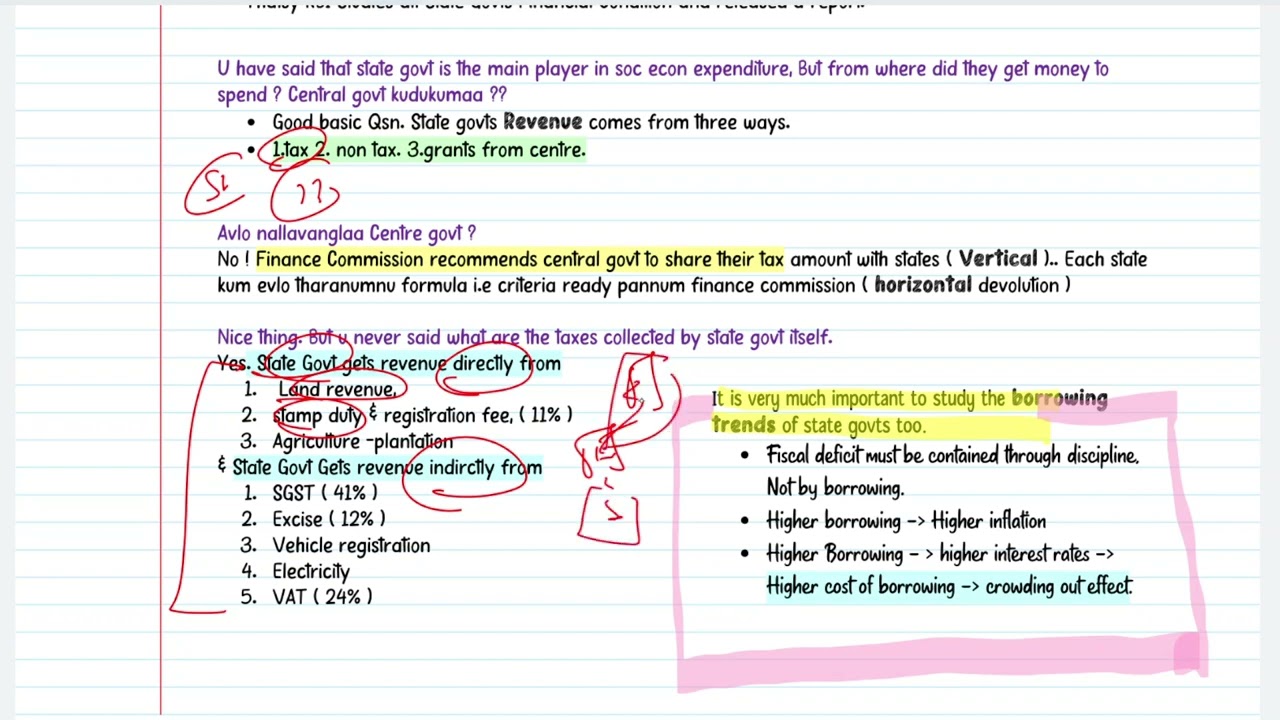 Finally RBI Studies all State Govts Financial Condition and released a report.
U have said that state govt is the main player in soc econ expenditure, But from where did they get money to
spend ? Central govt kudukumaa ??
• Good basic Qsn. State govts Revenue comes from three ways.
• 1.tax 2. non tax. 3.grants from centre.
??
Avlo nallavanglaa Centre govt ?
No ! Finance Commission recommends central govt to share their tax amount with states ( Vertical ).. Each state
kum evlo tharanumnu formula i.e criteria ready pannum finance commission ( horizontal devolution )
Nice thing. But u never said what are the taxes collected by state govt itself.
Yes. State Govt gets revenue directly from
1. Land revenue,
2. stamp duty & registration fee, ( 11% )
3. Agriculture -plantation
& State Govt Gets revenue indirctly from
1. SGST ( 41% )
2. Excise ( 12% )
3. Vehicle registration
4. Electricity
5. VAT ( 24% )
S
It is very much important to study the borrowing
trends of state govts too.
• Fiscal deficit must be contained through discipline,
Not by borrowing.
• Higher borrowing -> Higher inflation
• Higher Borrowing - > higher interest rates ->
Higher cost of borrowing -> crowding out effect.